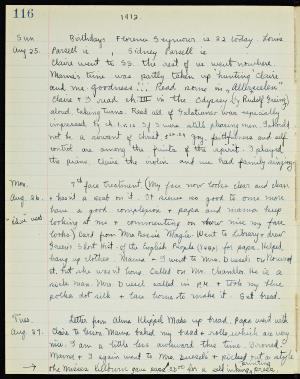 116
1912.
Sun. Birthdays Florence Seymour is 22 today Louise
Aug 25. Parsell is , Sidney Parsell is
Claire went to SS. the rest of us went nowhere.
Mama's time was partly taken up hunting Claire
and me goodness!!! Read some in
Claire & I read ch III in the Odyssey (by Rudolf Baring)
aloud, taking turns. Read all of Galatians was especially
impressed by ch 1 v. 10 If I were still pleasing men I should
not be a servant of Christ joy, faithfulness and self
control are among the fruits of the spirit. I played
the piano, Claire the violin and we had family singing.
Mon. 7th face treatment (My face now looks clear and clean
Aug. 26. + hasn't a spot on it. It seems so good to once more
have a good complexion + papa and mama keep
looking at me + commenting on how nice my face
looks) Card from Mrs Magie. Went to Library drew
Green's Short Hist. of the English People for papa. Helped
hang up clothes. Mama + I went to Mrs. Duesels on Norwood
st. but she wasn't home. Called on Mr. Chandler. He is a
sick man. Mrs Duesel called in P.M. + took my blue
polka dot silk + lace home to make it Got bread.
Tues. Letter from Alma Hippel Made up bread. Papa went with
Aug 27. Claire to Mama baked my bread + rolls which are very
nice. I am a little less awkward this time
Mama + I again went to Mrs. Duesels + picked out a style
→ The Misses Kilbourn gave for a